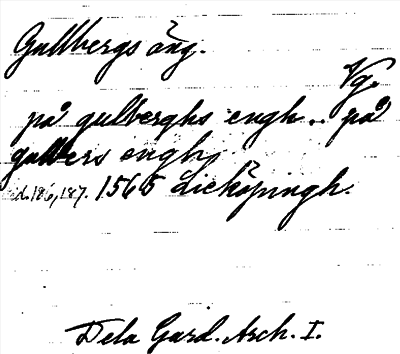 Gullbergs äng.
Vg.
på gulberghs engh. på
gulbers engh,
sid. 186, 187. 1565 Licköpingh.
Dela Gard. Arch. I.